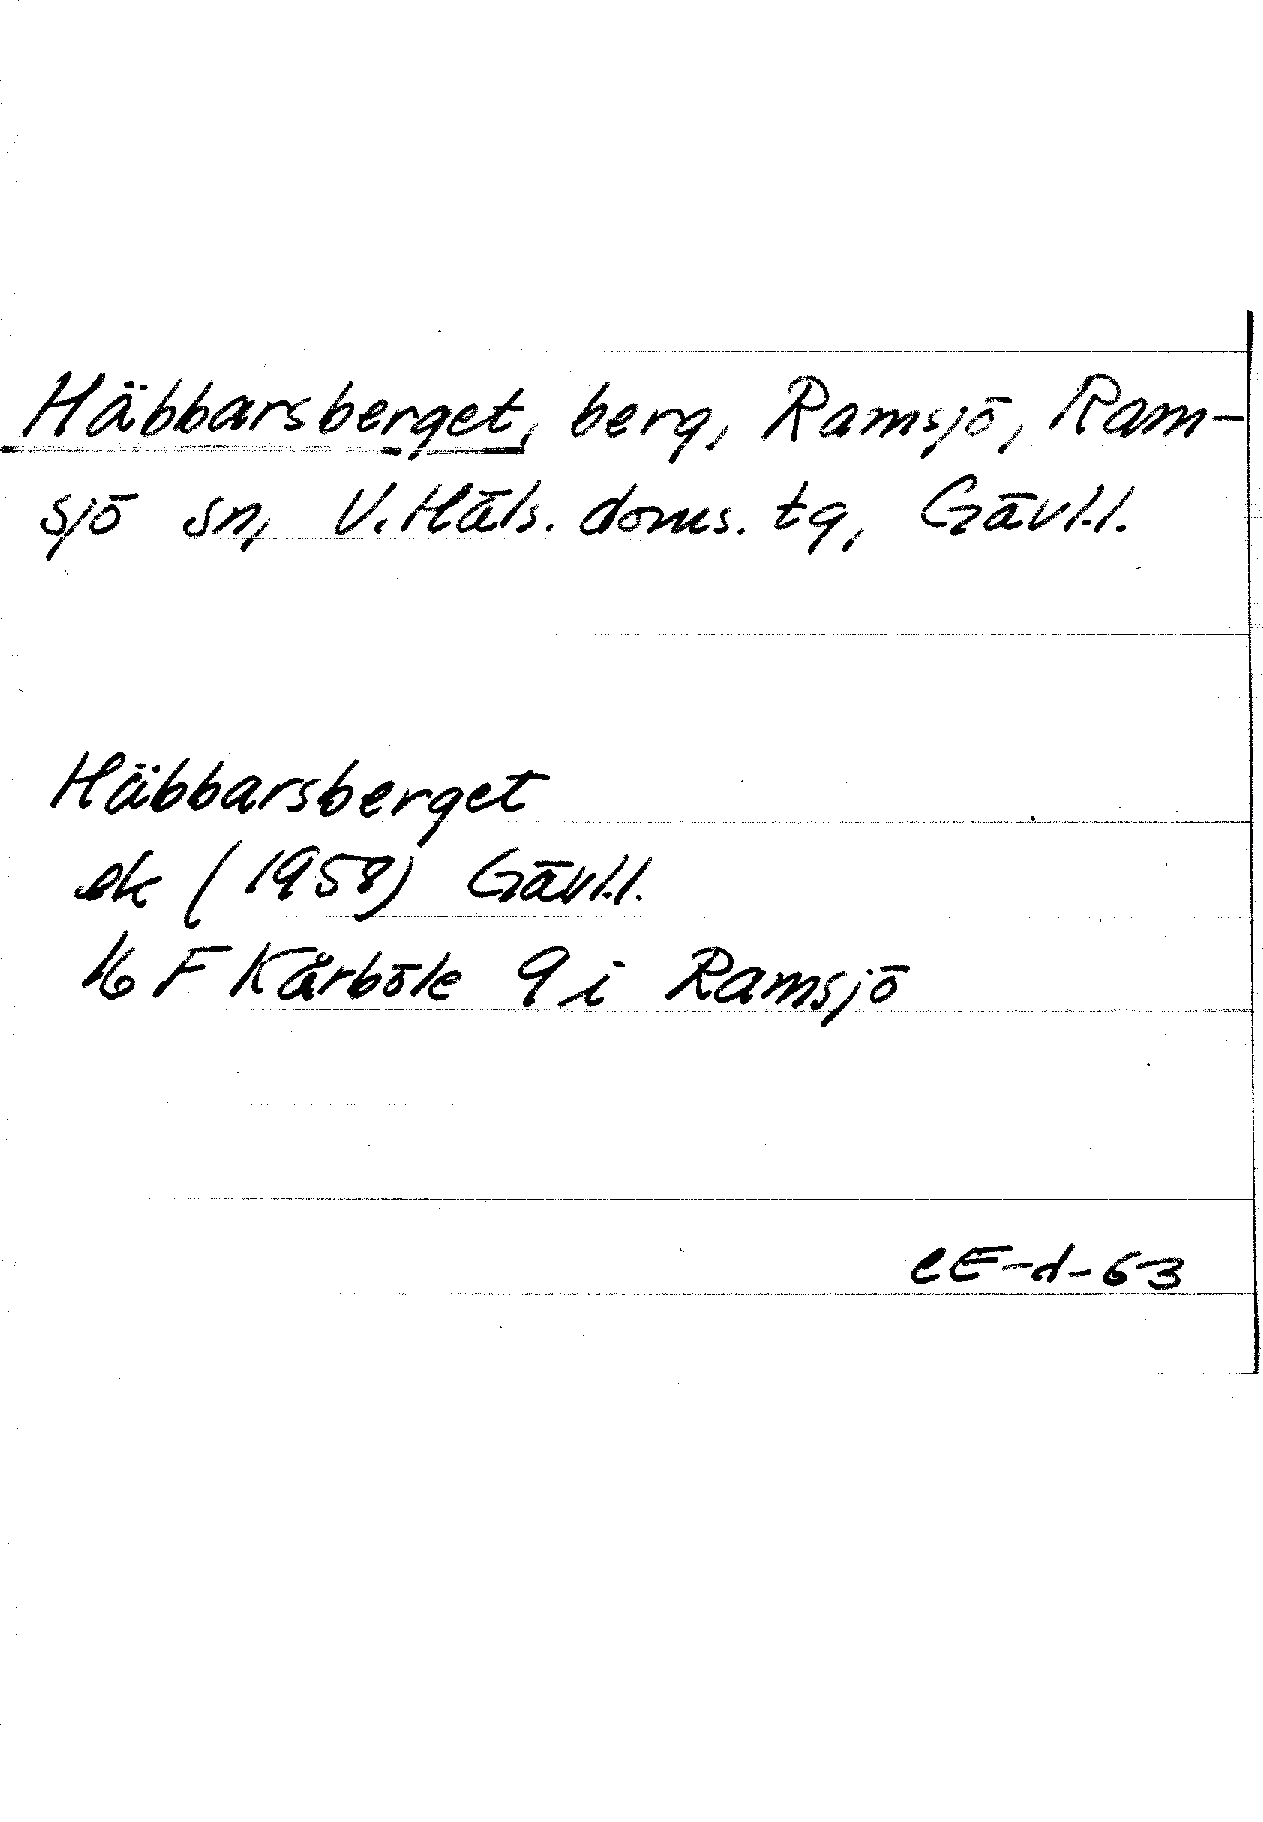 Häbbarsberget, berg, Ramsjö, Ram-
sjö sn, V. Häls. doms. tg, Gävl.l.
Häbbarsberget
ek (1958) Gävl.l.
16 F Kårböle 9 i Ramsjö
CE-d-63